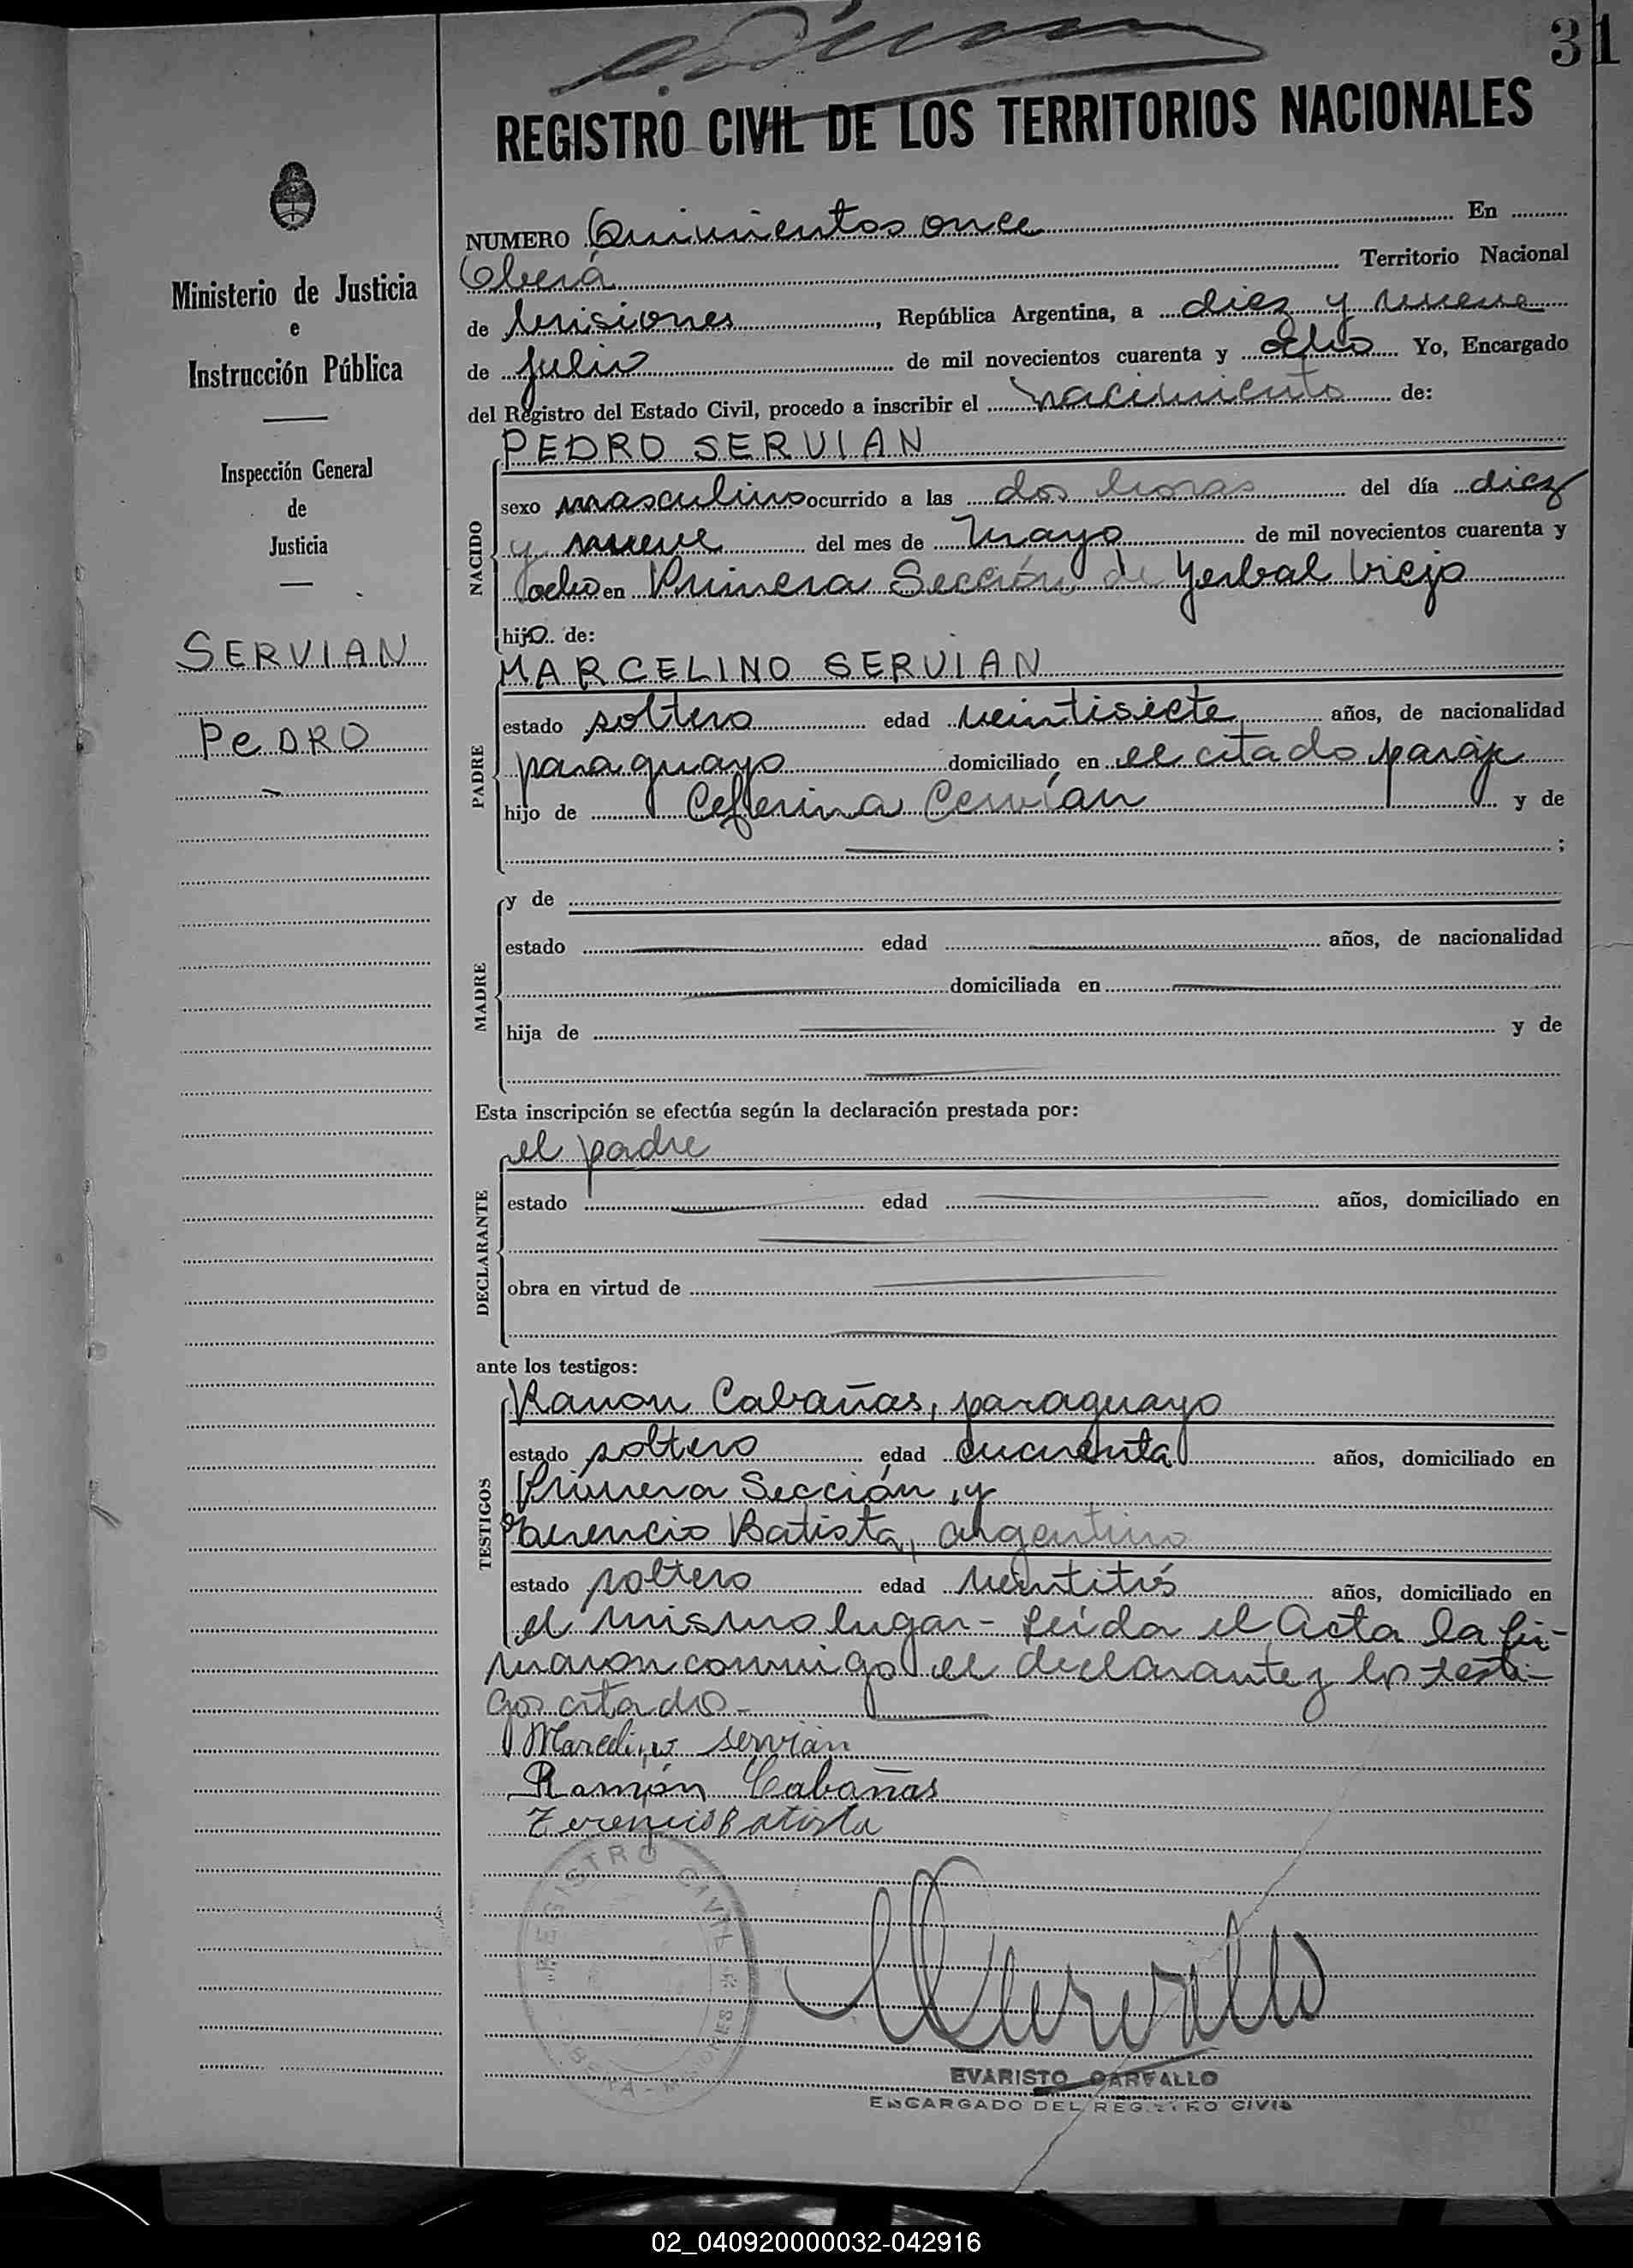 31
REGISTRO CIVIL DE LOS TERRITORIOS NACIONALES
Ministerio de Justicia
e
Instrucción Pública
Inspección General
de
Justicia
SERVIAN
PEDRO
NUMERO Quinientos once En
Oberá Territorio Nacional
de Misiones, República Argentina, a diez y nueve
de Julio de mil novecientos cuarenta y ocho Yo, Encargado
del Registro del Estado Civil, procedo a inscribir el nacimiento de:
PEDRO SERVIAN
NACIDO
sexo masculino ocurrido a las dos horas del día diez
y nueve del mes de Mayo de mil novecientos cuarenta y
ocho en Primera Sección de Yerbal Viejo
hijo de:
MARCELINO SERVIAN
PADRE
estado soltero edad veintisiete años, de nacionalidad
paraguayo domiciliado en el citado paraje
hijo de Ceferina Cervián y de
;
MADRE
y de
estado edad años, de nacionalidad
domiciliada en
hija de y de
Esta inscripción se efectúa según la declaración prestada por:
el padre
DECLARANTE
estado edad años, domiciliado en
obra en virtud de
ante los testigos:
TESTIGOS
Ramon Cabañas, paraguayo
estado soltero edad cuarenta años, domiciliado en
Primera Sección, y
Terencio Batista, argentino
estado soltero edad veintitrés años, domiciliado en
el mismo lugar - Leída el Acta la fir-
maron conmigo el declarante y los testi-
gos citados -
Marcelino servian
Ramón Cabañas
Terencio Batista
REGISTRO CIVIL
OBERA - MISIONES
EVARISTO CARVALLO
ENCARGADO DEL REGISTRO CIVIL
02_040920000032-042916